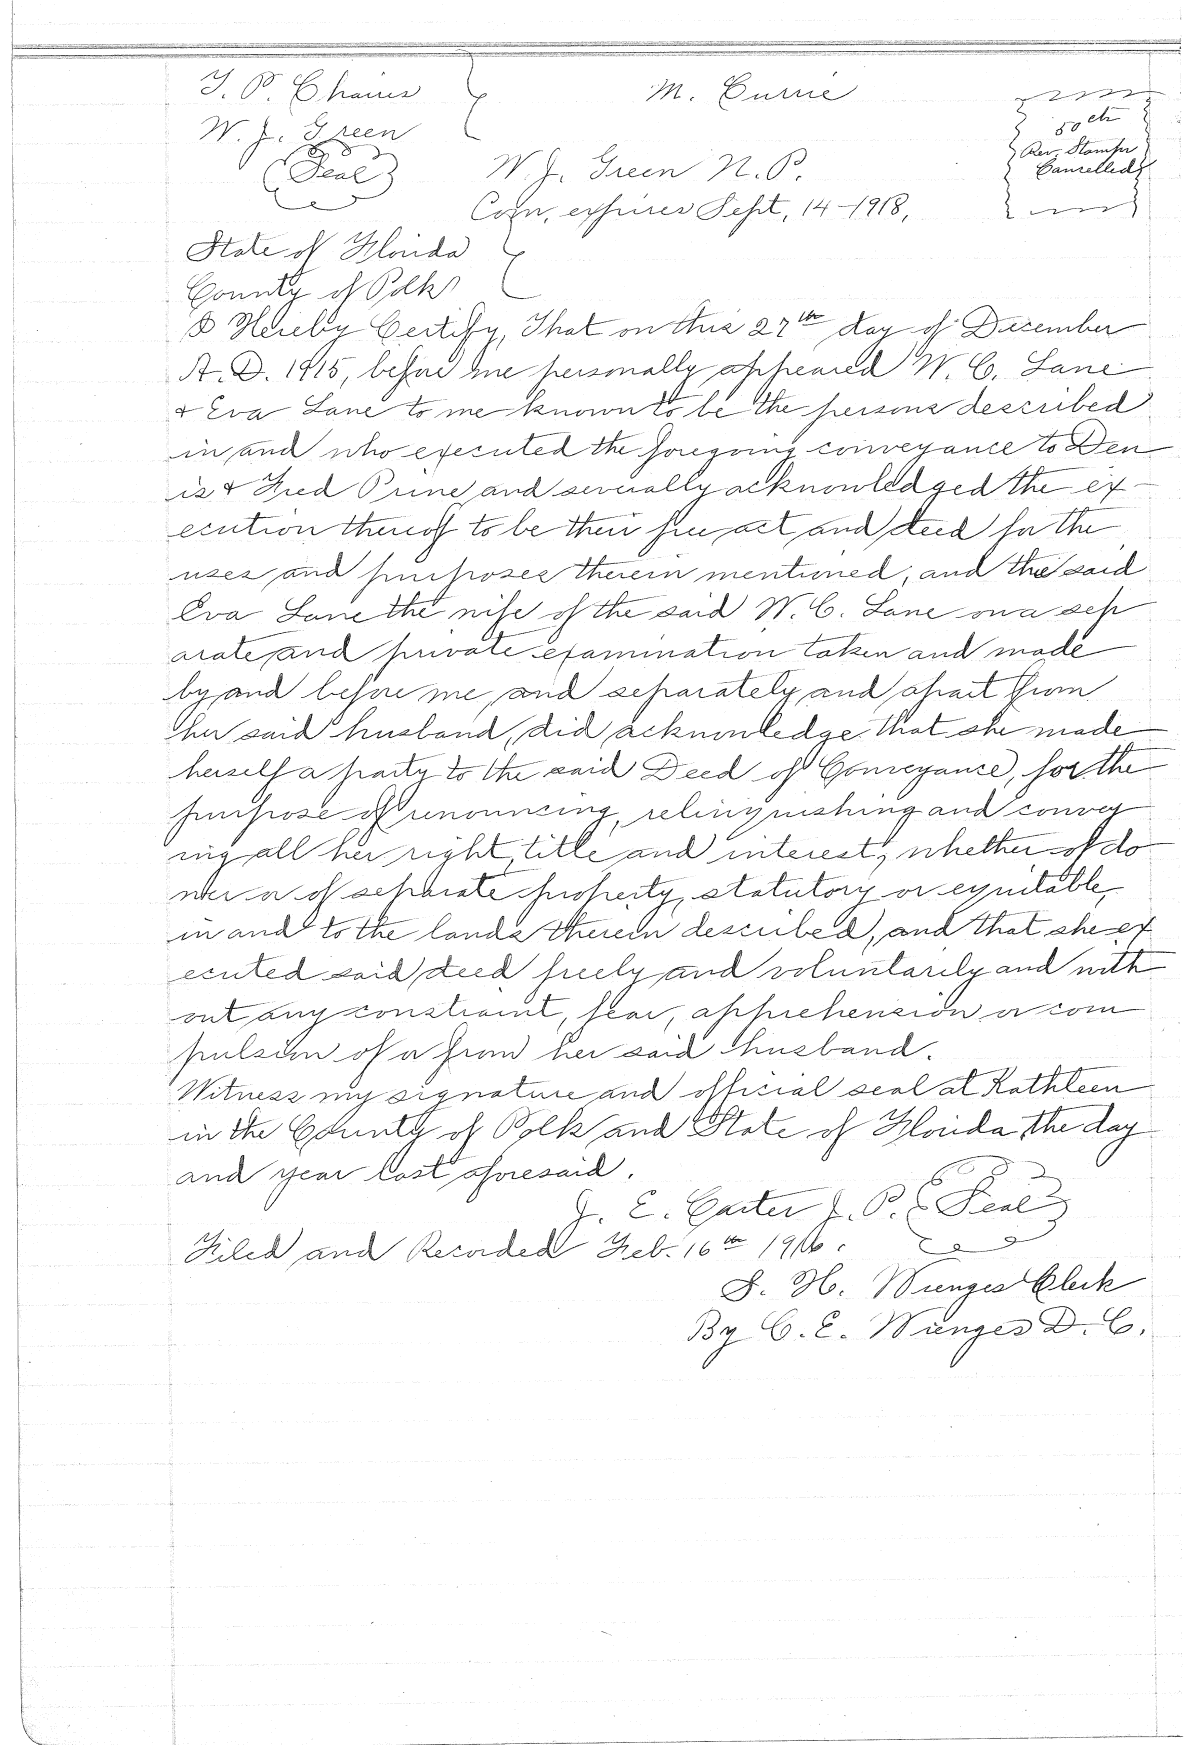 T. P. Chaires
M. Currie
W. J. Green
(Seal)
50 cts
Rev. Stamps
Cancelled
W. J. Green N. P.
Com. expires Sept, 14-1918,
State of Florida
County of Polk
I Hereby Certify, That on this 27th day of December
A. D. 1915, before me personally appeared W. C. Lane
& Eva Lane to me known to be the persons described
in and who executed the foregoing conveyance to Den
is & Fred Prine and severally acknowledged the ex-
ecution thereof to be their free act and deed for the
uses and purposes therein mentioned; and the said
Eva Lane the wife of the said W. C. Lane on a sep
arate and private examination taken and made
by and before me, and separately and apart from
her said husband, did acknowledge that she made
herself a party to the said Deed of Conveyance, for the
purpose of renouncing, relinquishing and convey
ing all her right, title and interest, whether of do
wer or of separate property, statutory or equitable,
in and to the lands therein described, and that she ex
ecuted said deed freely and voluntarily and with
out any constraint, fear, apprehension or com
pulsion of or from her said husband.
Witness my signature and official seal at Kathleen
in the County of Polk and State of Florida, the day
and year last aforesaid.
J. E. Carter J. P. (Seal)
Filed and Recorded Feb. 16th 1916.
J. H. Wienges Clerk
By C. E. Wienges D. C.